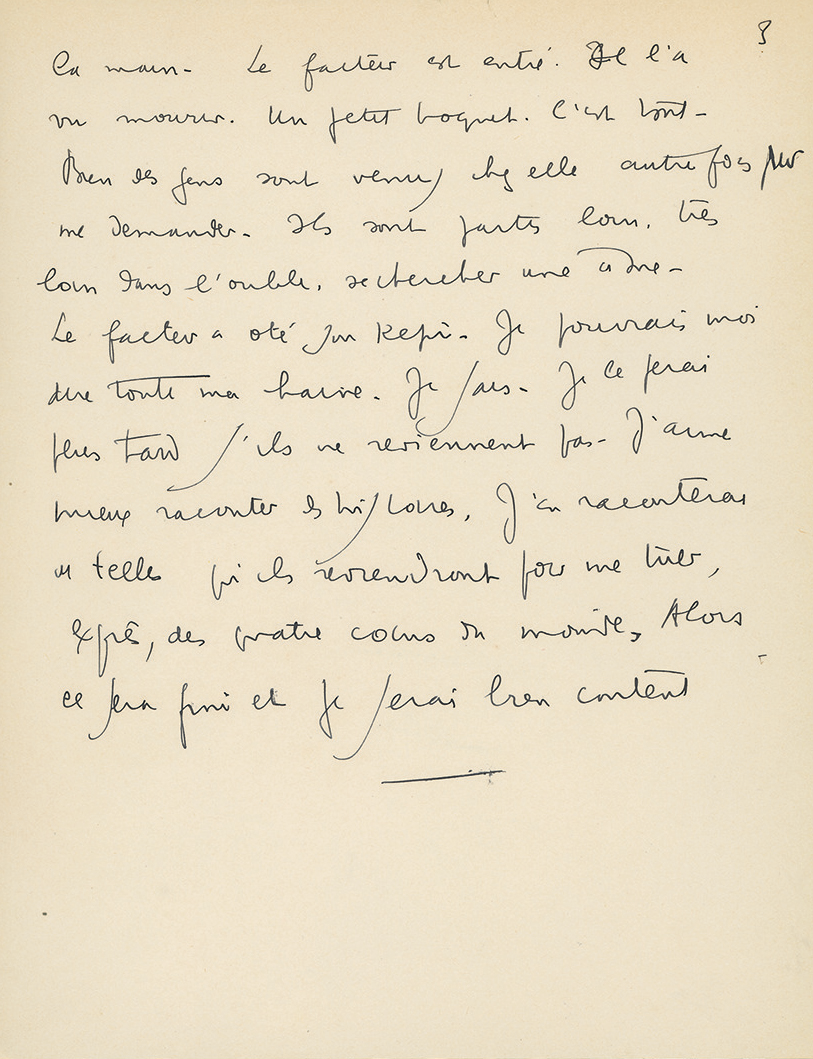 3
la main - Le facteur est entré. Il l'a
vu mourir. Un petit hoquet. C'est tout -
Bien des gens sont venus chez elle autrefois pour
me demander - Ils sont partis loin, très
loin dans l'oubli, se chercher une
Le facteur a oté son Kepi - Je pourrais moi
dire toute ma haine - Je sais - Je le ferai
plus tard s'ils ne reviennent pas - J'aime
mieux raconter des histoires, J'en raconterai
de telles qu'ils reviendront pour me tuer,
Exprès, des quatre coins du monde, Alors
ce sera fini et je serai bien content